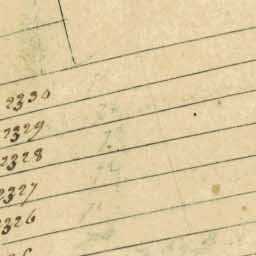 2330
2329
2328
2327
2326